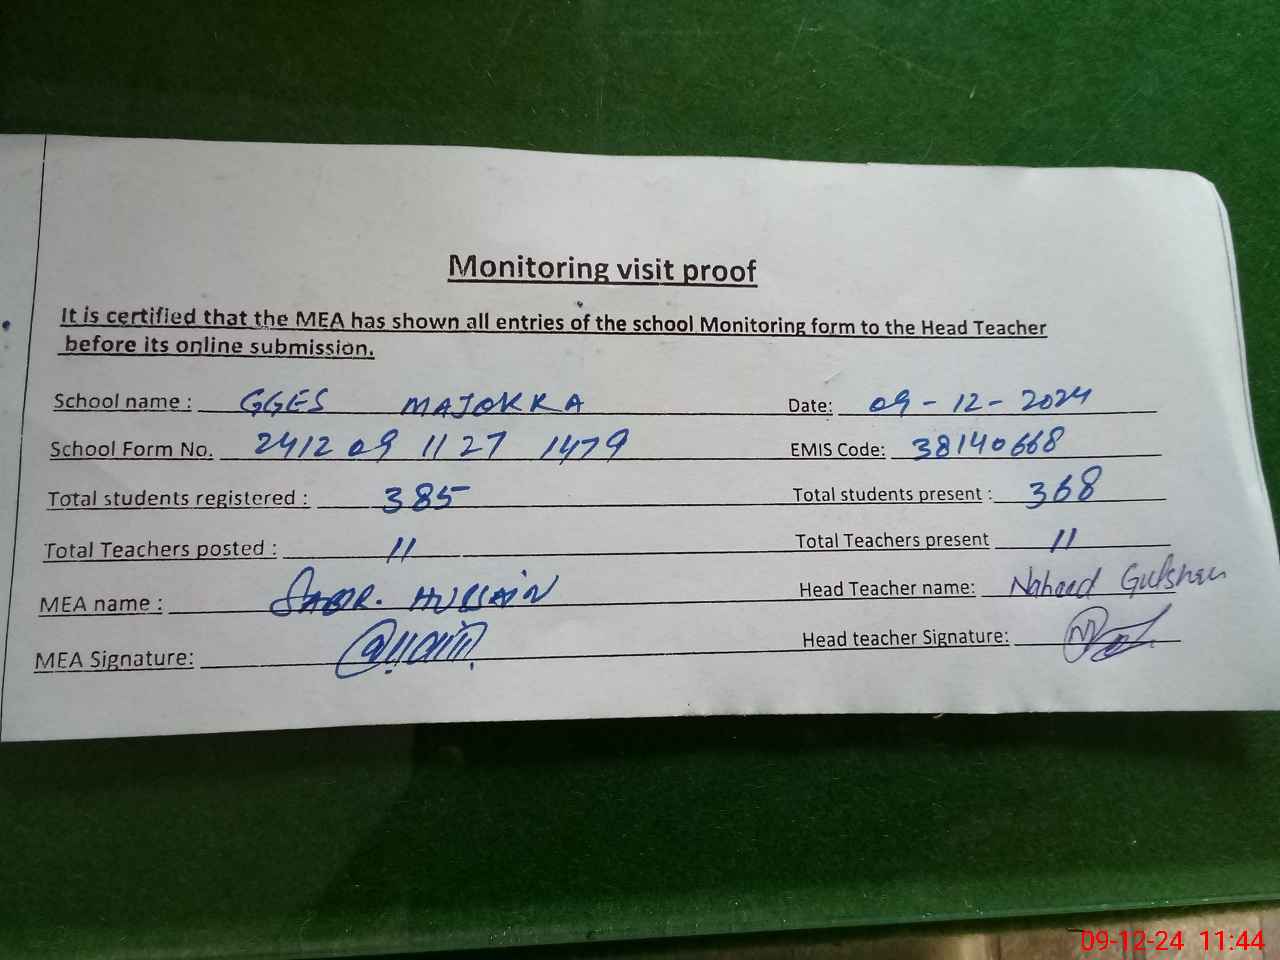 Monitoring visit proof
It is certified that the MEA has shown all entries of the school Monitoring form to the Head Teacher
before its online submission.
School name : GGES MAJOKKA Date: 09-12-2024
School Form No. 241209 1127 1479 EMIS Code: 38140668
Total students registered : 385 Total students present : 368
Total Teachers posted : 11 Total Teachers present 11
MEA name : HUSSAIN Head Teacher name: Naheed Gulshan
MEA Signature: Head teacher Signature:
09-12-24 11:44